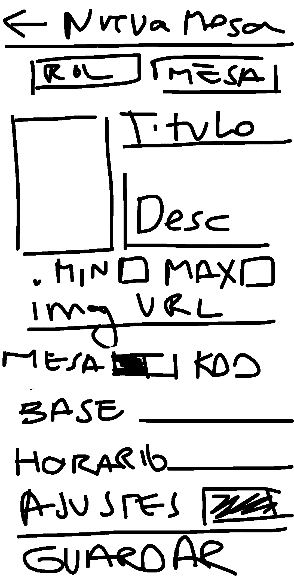 ← NUEVA MESA
ROL MESA
Titulo
Desc
. MIN MAX
img URL
MESA
BASE
HORARIO
AJUSTES
GUARDAR